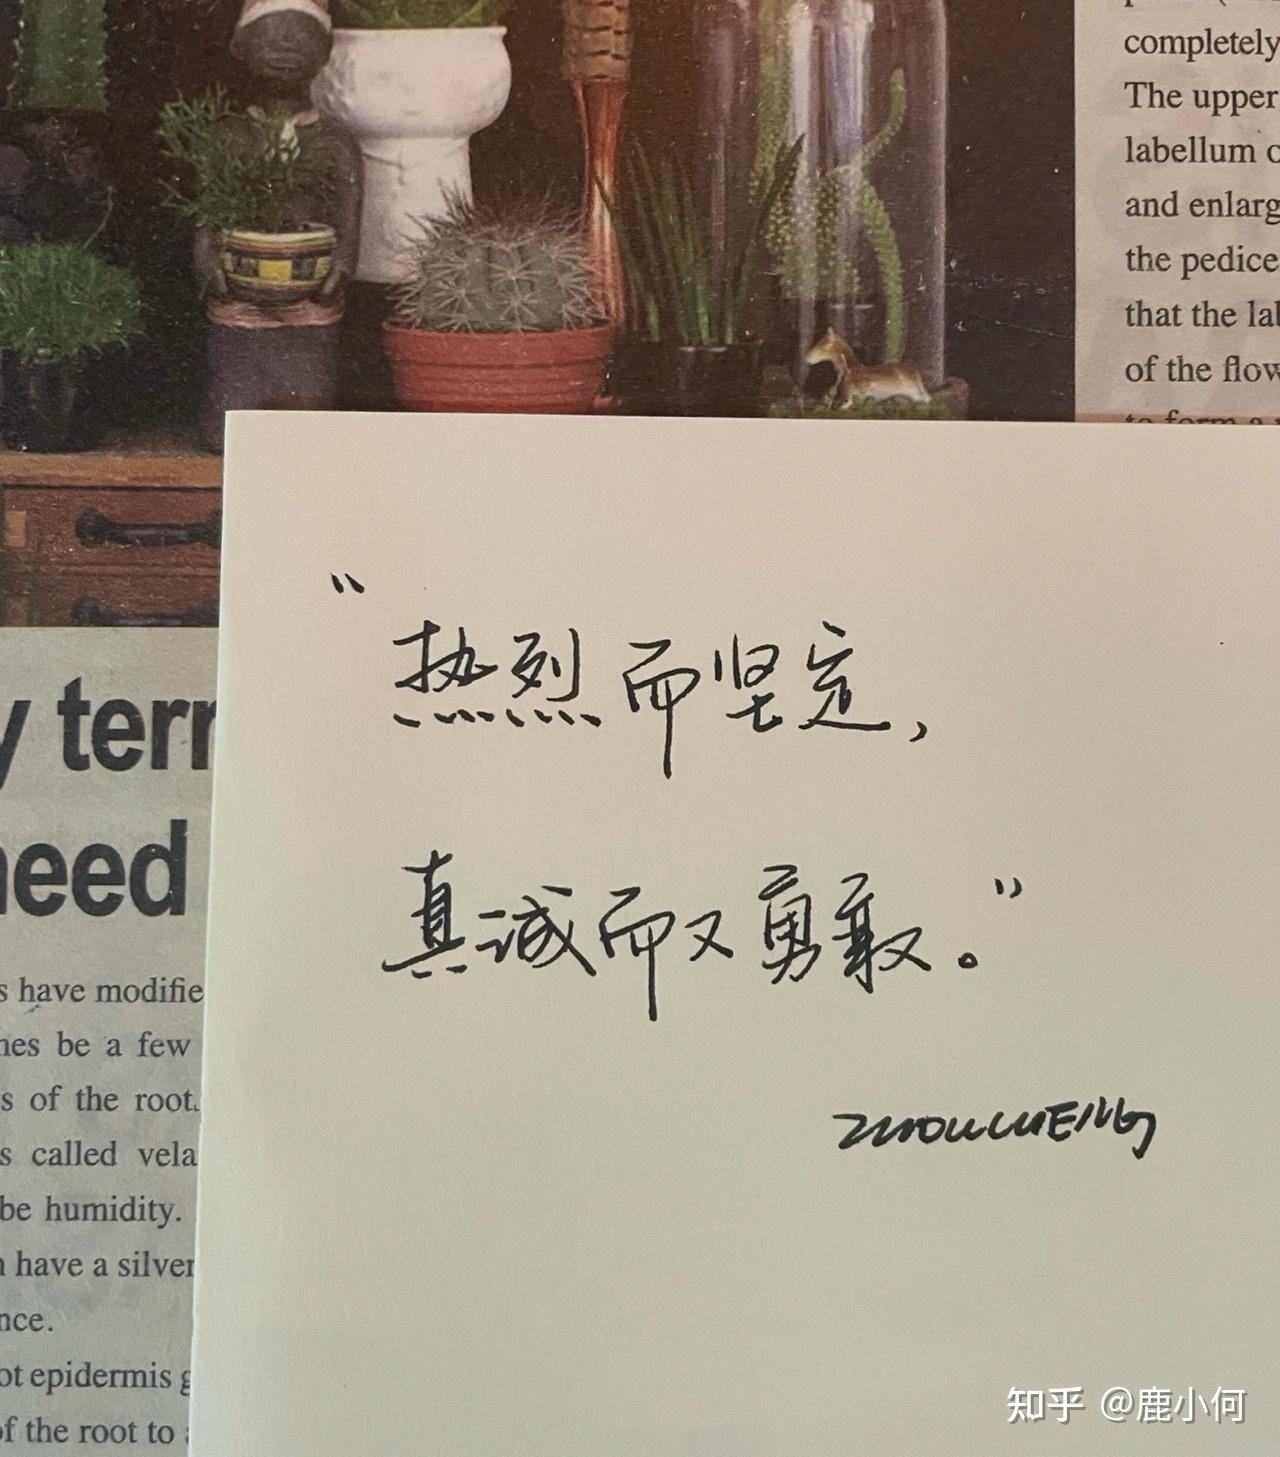 completely
The upper
labellum
and enlarg
the pedice
that the la
of the flow
y terr
need
s have modifie
nes be a few
s of the root.
s called vela
be humidity.
n have a silver
nce.
ot epidermis g
of the root to
“热烈而坚定，
真诚而又勇敢。”
知乎 @鹿小何